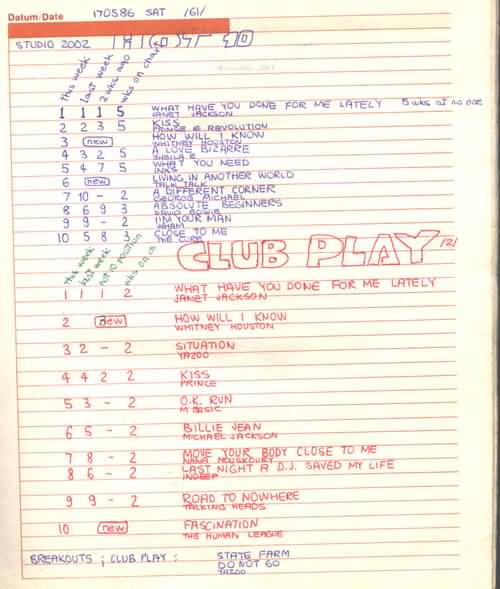 Datum/Date 170586 SAT /61/
STUDIO 2002 HOT 10
this week last week 2 wks ago wks on chart
1 1 1 5 WHAT HAVE YOU DONE FOR ME LATELY 5 wks at no one
JANET JACKSON
2 2 3 5 KISS
PRINCE & REVOLUTION
3 new HOW WILL I KNOW
WHITNEY HOUSTON
4 3 2 5 A LOVE BIZARRE
SHEILA E
5 4 7 5 WHAT YOU NEED
INXS
6 new LIVING IN ANOTHER WORLD
TALK TALK
7 10 - 2 A DIFFERENT CORNER
GEORGE MICHAEL
8 6 9 3 ABSOLUTE BEGINNERS
DAVID BOWIE
9 9 - 2 I'M YOUR MAN
WHAM
10 5 8 3 CLOSE TO ME
THE CURE
CLUB PLAY /2/
this week last week position wks on ch
1 1 1 2 WHAT HAVE YOU DONE FOR ME LATELY
JANET JACKSON
2 new HOW WILL I KNOW
WHITNEY HOUSTON
3 2 - 2 SITUATION
YAZOO
4 4 2 2 KISS
PRINCE
5 3 - 2 O.K. RUN
M BASIC
6 5 - 2 BILLIE JEAN
MICHAEL JACKSON
7 8 - 2 MOVE YOUR BODY CLOSE TO ME
NANA MOUSKOURY
8 6 - 2 LAST NIGHT A D.J. SAVED MY LIFE
INDEEP
9 9 - 2 ROAD TO NOWHERE
TALKING HEADS
10 new FASCINATION
THE HUMAN LEAGUE
BREAKOUTS ; CLUB PLAY : STATE FARM
DO NOT GO
YAZOO